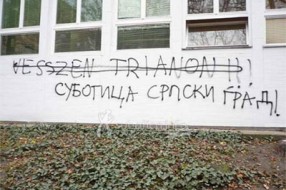 VESSZEN TRIANON!
СУБОТИЦА СРПСКИ ГРАД!